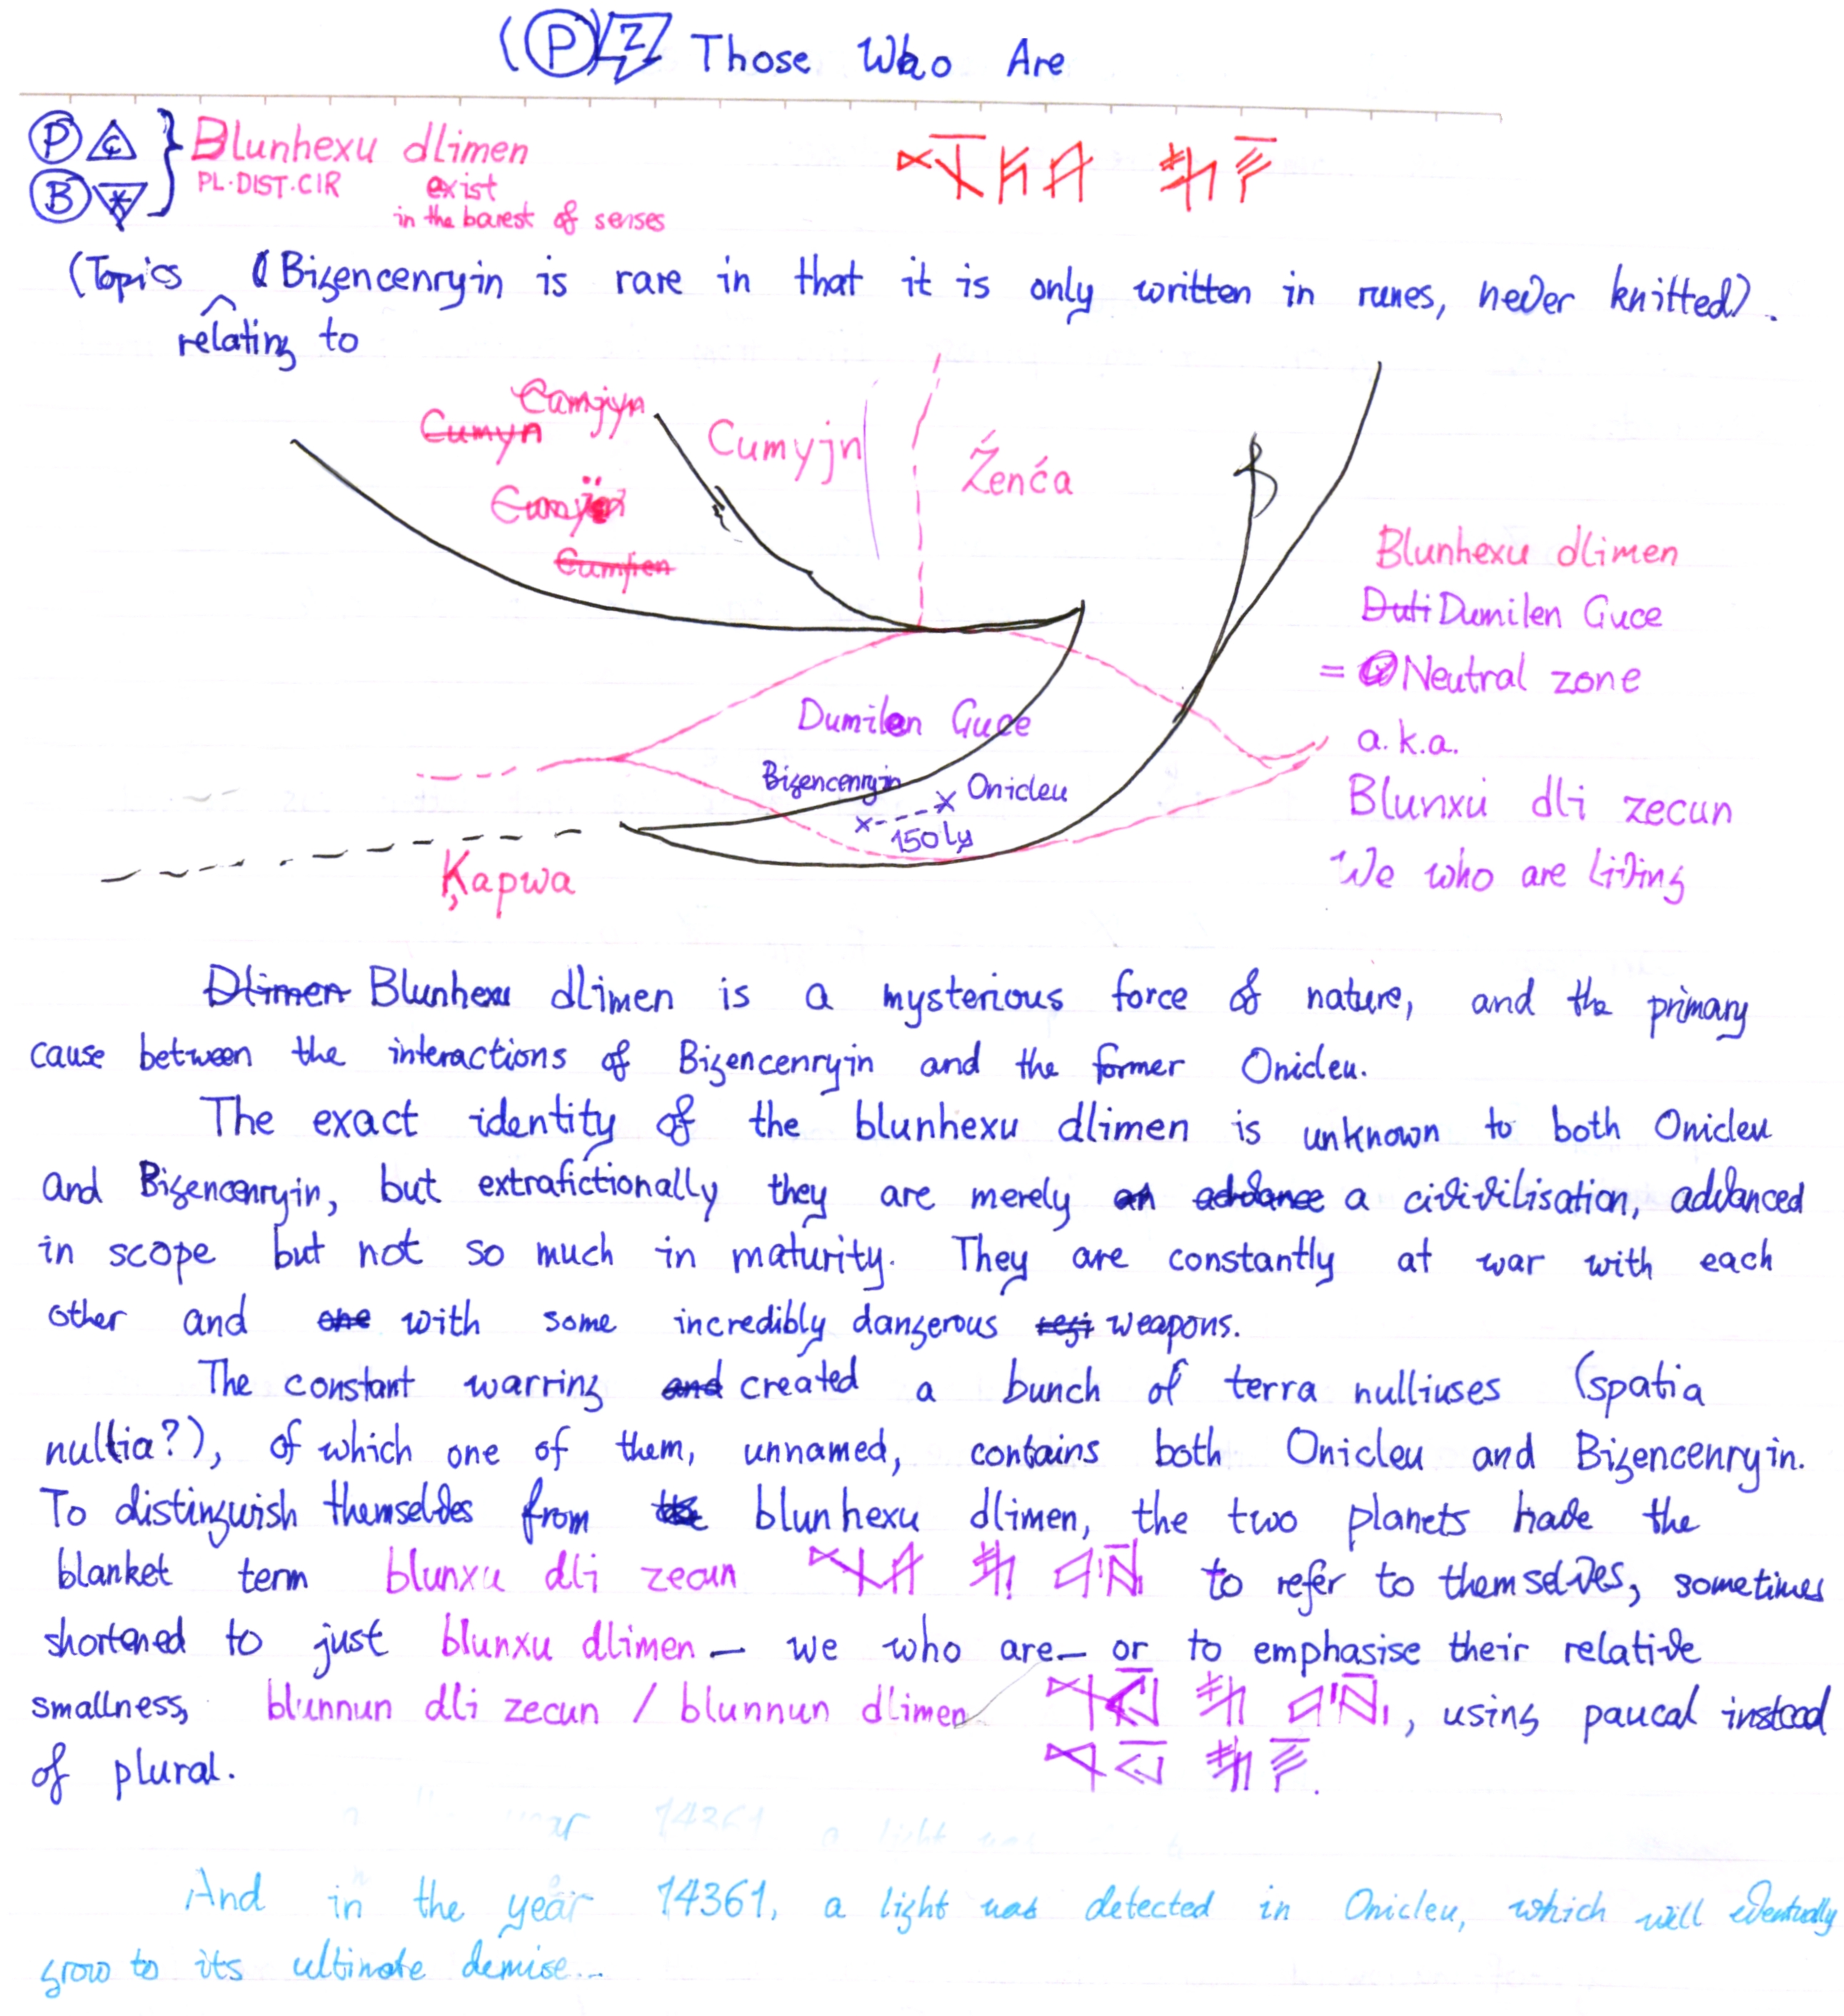 (P) Z Those Who Are
P C } Blunhexu dlimen
PL.DIST.CIR exist
B in the barest of senses
(Topics (Bizencenryin is rare in that it is only written in runes, never knitted).
relating to
Camjyn
Cumyn
Cumyjn
Źenća
Blunhexu dlimen
Duti Dumilen Guce
= Neutral zone
a.k.a.
Blunxu dli zecun
We who are living
Dumilen Guce
Bizencenryin
Onicleu
150 ly
Ķapwa
Dlimen Blunhexu dlimen is a mysterious force of nature, and the primary
cause between the interactions of Bizencenryin and the former Onicleu.
The exact identity of the blunhexu dlimen is unknown to both Onicleu
and Bizencenryin, but extrafictionally they are merely an advance a civivilisation, advanced
in scope but not so much in maturity. They are constantly at war with each
other and one with some incredibly dangerous weapons.
The constant warring and created a bunch of terra nulliuses (spatia
nullia?), of which one of them, unnamed, contains both Onicleu and Bizencenryin.
To distingwish themselves from the blunhexu dlimen, the two planets have the
blanket term blunxu dli zecun to refer to themselves, sometimes
shortened to just blunxu dlimen — we who are — or to emphasise their relative
smallness, blunnun dli zecun / blunnun dlimen , using paucal instead
of plural.
And in the year 14361, a light was detected in Onicleu, which will eventually
grow to its ultimate demise...